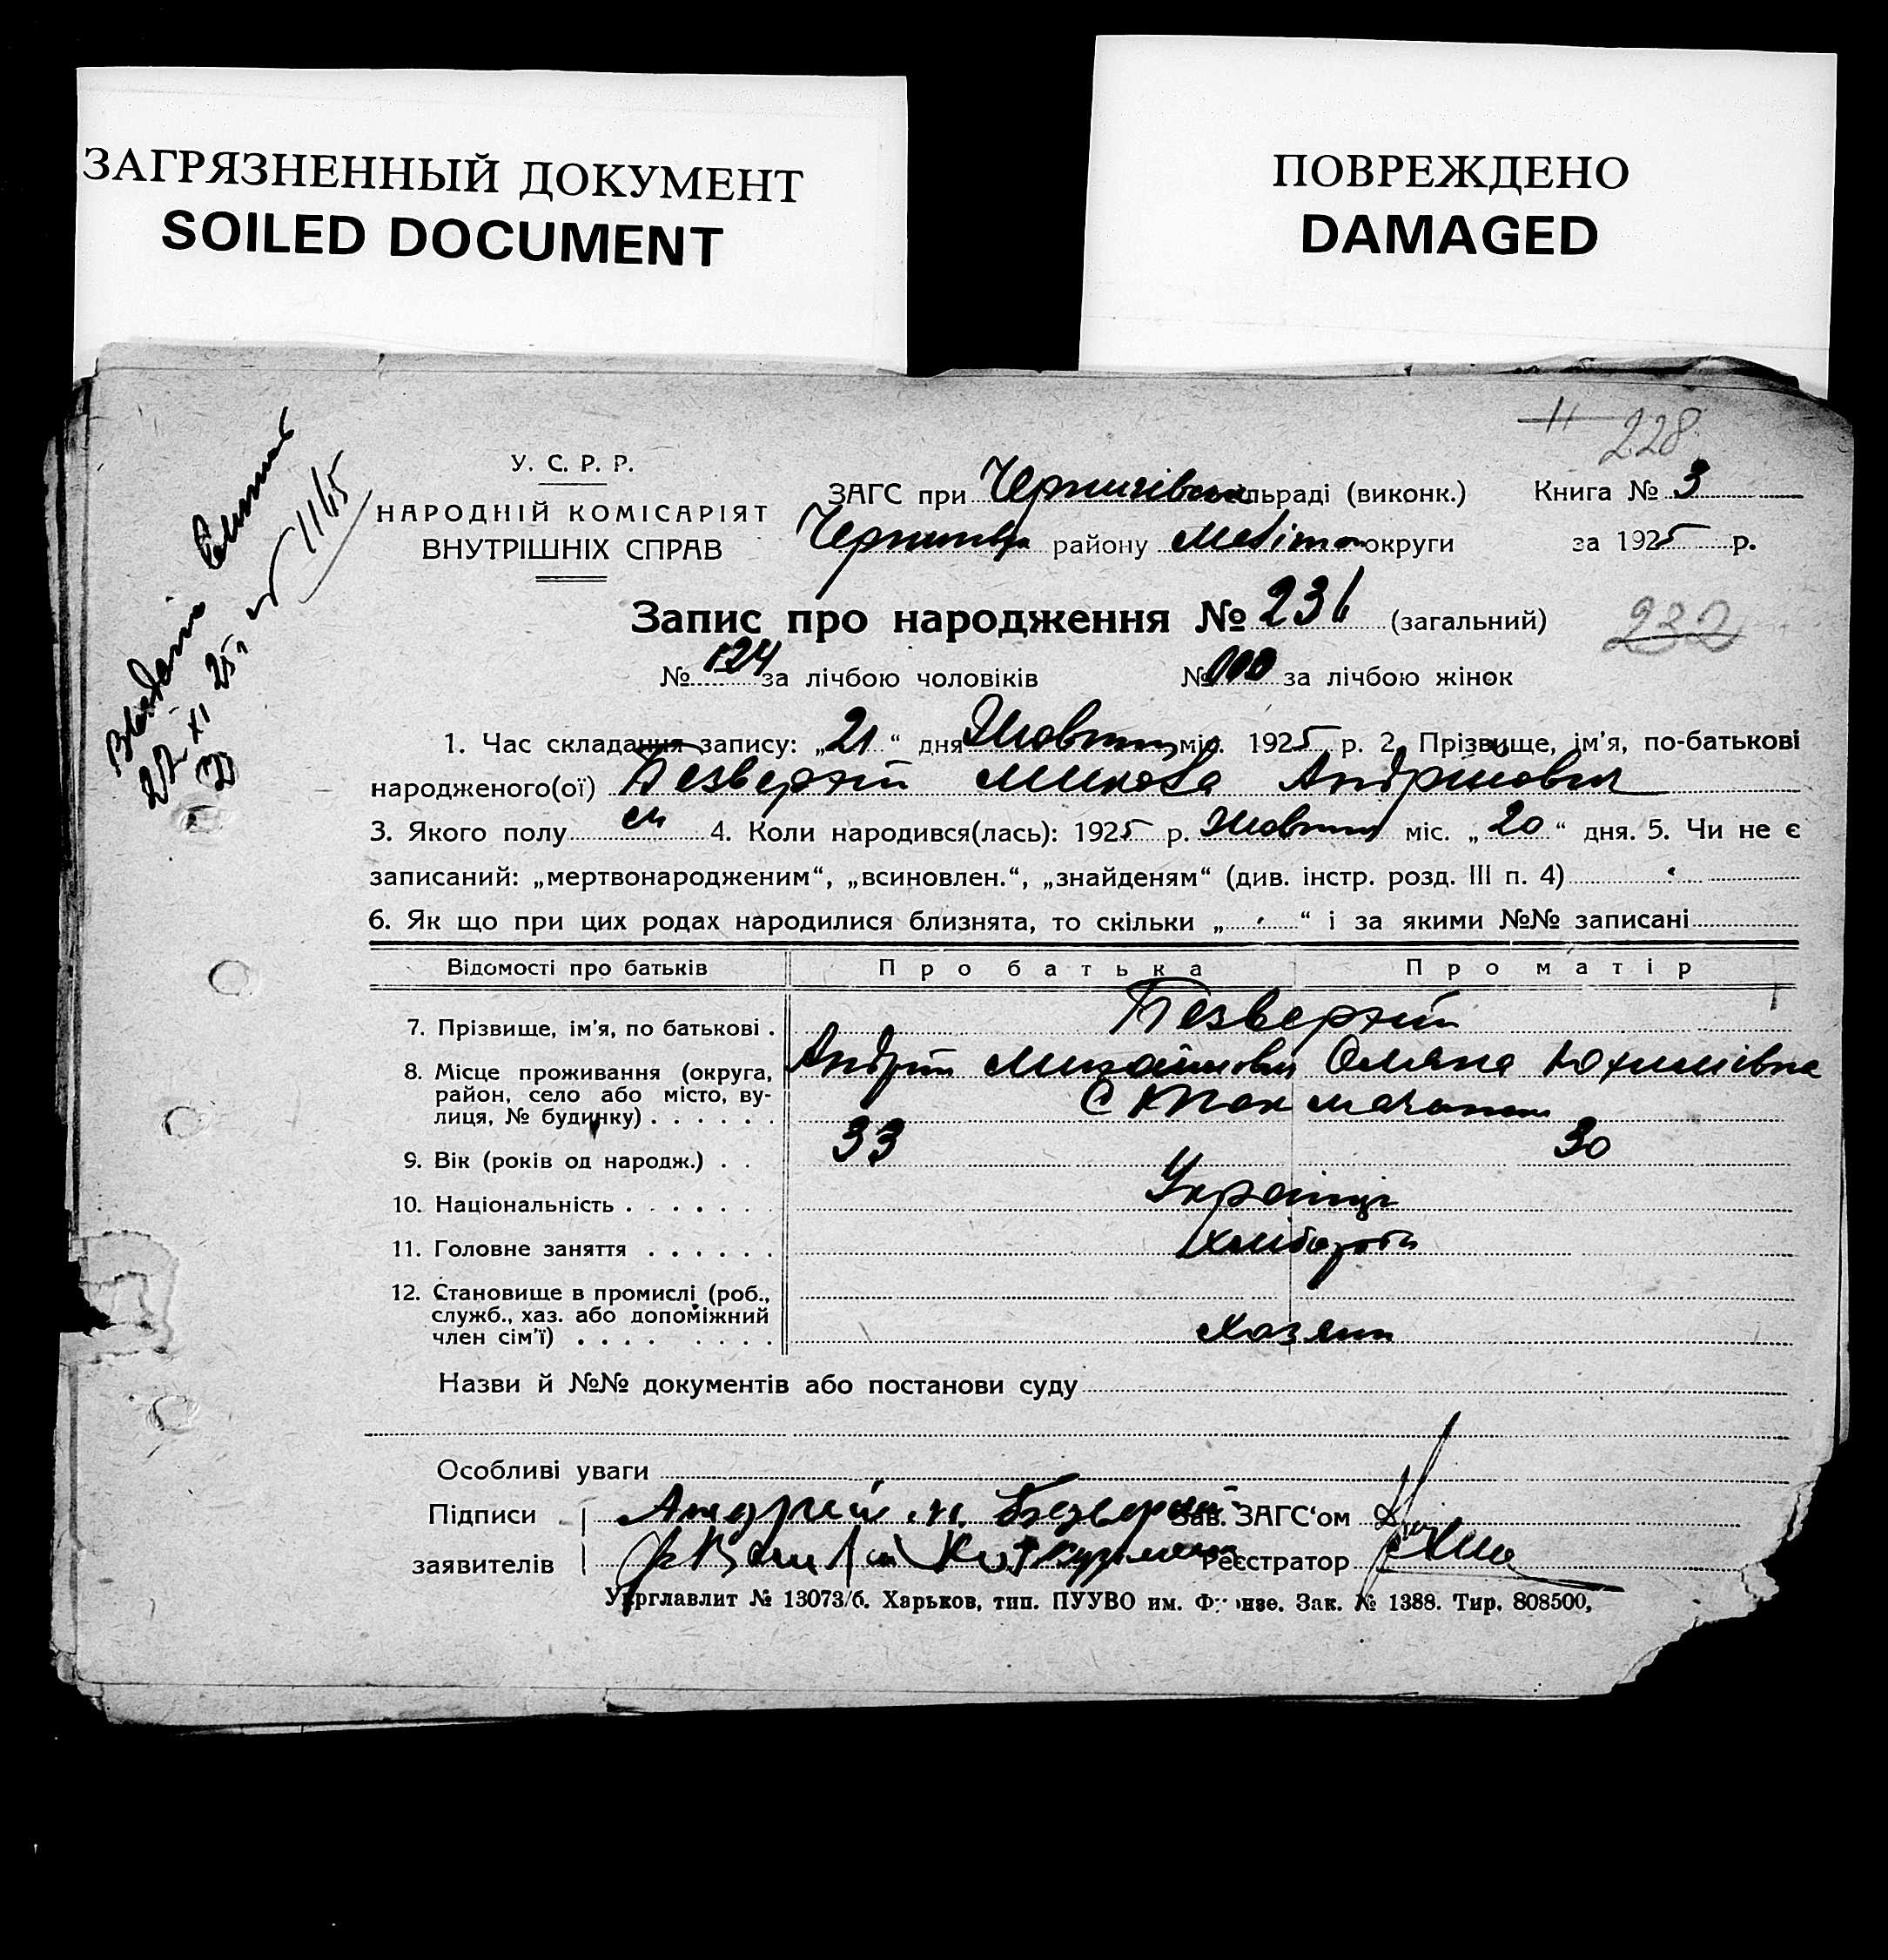 ЗАГРЯЗНЕННЫЙ ДОКУМЕНТ
SOILED DOCUMENT
ПОВРЕЖДЕНО
DAMAGED
11 228
У. С. Р. Р.
НАРОДНІЙ КОМІСАРІЯТ
ВНУТРІШНІХ СПРАВ
ЗАГС при Чернігівськ льраді (виконк.) Книга № 3
району округи за 1925 р.
Запис про народження № 236 (загальний) 232
№ 124 за лічбою чоловіків № за лічбою жінок
1. Час складання запису: „21“ дня Жовтня міс. 1925 р. 2. Прізвище, ім'я, по-батькові
народженого(ої) Безверхий Микола Андрійович
3. Якого полу 4. Коли народився(лась): 1925 р. Жовтня міс. „20“ дня. 5. Чи не є
записаний: „мертвонародженим“, „всиновлен.“, „знайденям“ (див. інстр. розд. III п. 4)
6. Як що при цих родах народилися близнята, то скільки „ “ і за якими №№ записані
Відомості про батьків Про батька Про матір
7. Прізвище, ім'я, по батькові . Безверхий
8. Місце проживання (округа, Андрій Михайлович Оляна Юхимівна
район, село або місто, ву-
лиця, № будинку) . . . . . . С
9. Вік (років од народж.) . . 33 30
10. Національність . . . . . . . Українці
11. Головне заняття . . . . . . хлібороби
12. Становище в промислі (роб.,
служб., хаз. або допоміжний
член сім'ї) . . . . . . . . Хазяин
Назви й №№ документів або постанови суду
Особливі уваги
Підписи Андрій М. Безверхий Зав. ЗАГС'ом
заявителів Реєстратор
Укрглавлит № 13073/б. Харьков, тип. ПУУВО им. Фрунзе. Зак. № 1388. Тир. 808500,